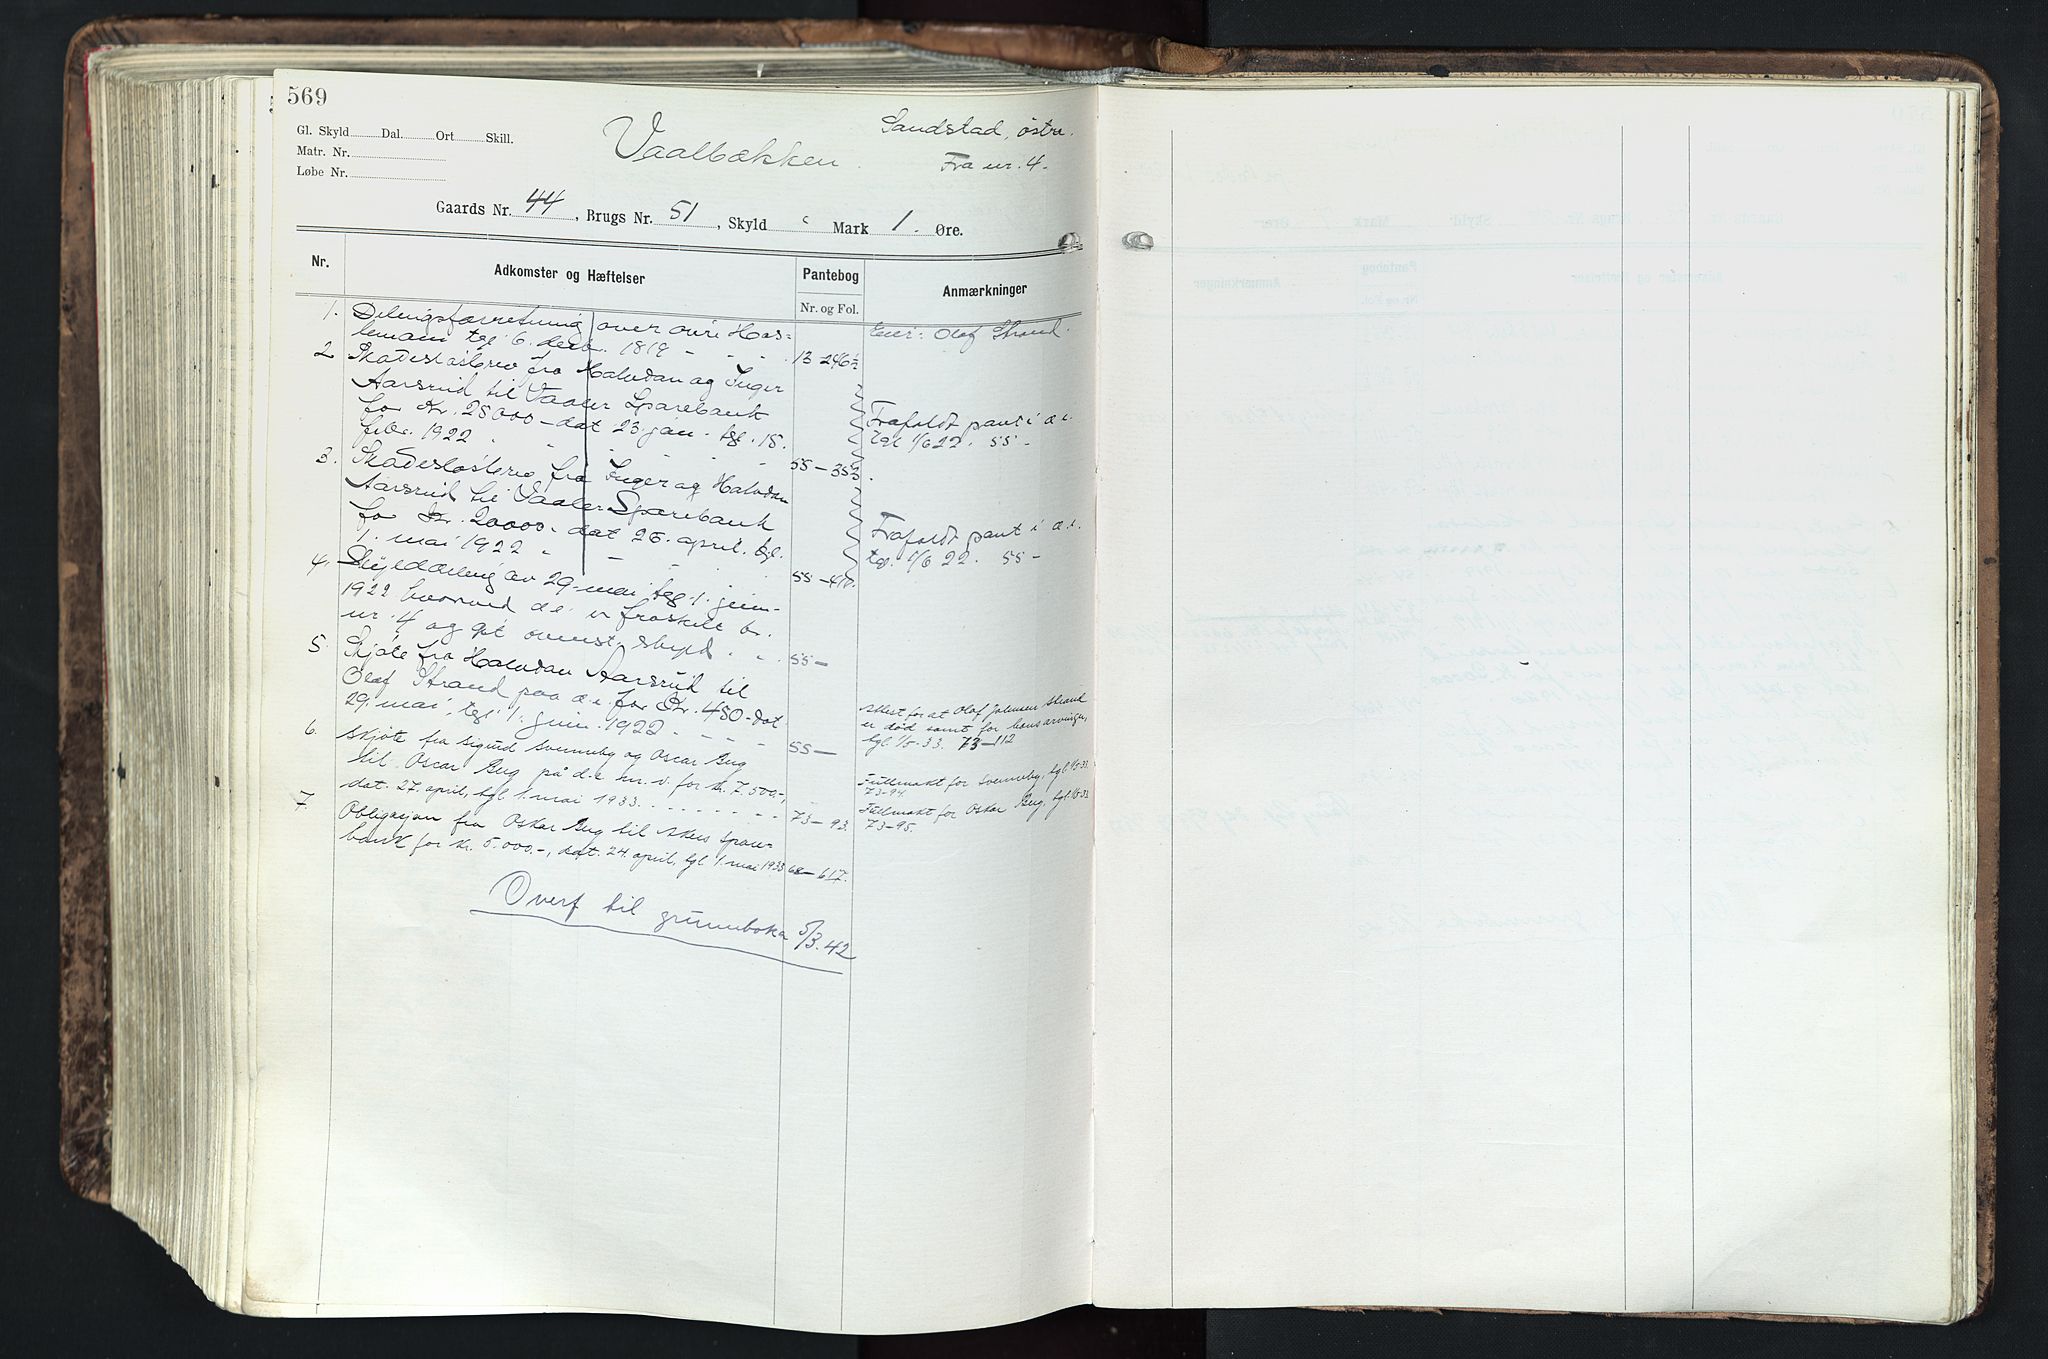 569
Gl. Skyld Dal. Ort Skill.
Matr. Nr.
Løbe Nr.
Vaalbækken.
Sandstad, østre.
Fra nr. 4.
Gaards Nr. 44, Brugs Nr. 51, Skyld Mark 1. Øre.
Nr.
Adkomster og Hæftelser
Pantebog
Nr. og Fol.
Anmærkninger
1. Delingsforretning over øvre Has-
lemoen tgl. 6. decb. 1819 - - - 13-246½
Eier: Olaf Strand.
2. Skadesløsbrev fra Halvdan og Inger
Aarsrud til Vaaler Sparebank
for Kr. 25000- dat 23. jan. tgl. 15.
febr. 1922 55-353
Frafaldt pant i d.e.
tgl 1/6 22. 55-
3. Skadesløsbrev fra Inger og Halvdan
Aarsrud til Vaaler Sparebank
for Kr. 20000- dat 26. april. tgl.
1. mai 1922 - - 55-410.
Frafaldt pant i d.e.
tgl. 1/6 22. 55-
4. Skylddeling av 29. mai, tgl 1. juni
1922 hvorved d.e. er fraskilt br.
nr. 4 og git ovenst. skyld. - 55-
5. Skjøte fra Halvdan Aarsrud til
Olaf Strand paa d.e. for Kr. 450- dat
29. mai, tgl 1. juni 1922 - - - 55-
Attest for at Olaf Johnsen Strand
er død samt for hans arvinger,
tgl. 1/5-33. 73-112
6. Skjøte fra Sigurd Svenneby og Oscar Bug
til Oscar Bug på d.e. m. v. for kr. 7.500,-,
dat. 27. april, tgl 1. mai 1933. - - - - 73-93.
Fullmakt for Svenneby, tgl. 1/5-33
73-94.
Fullmakt for Oskar Bug, tgl. 1/5-33
73-95.
7. Obligasjon fra Oskar Bug til Åsnes spare-
bank for kr. 5.000.-, dat. 24. april, tgl 1. mai 1933 68-617.
Overf til grunnboka 5/3.42